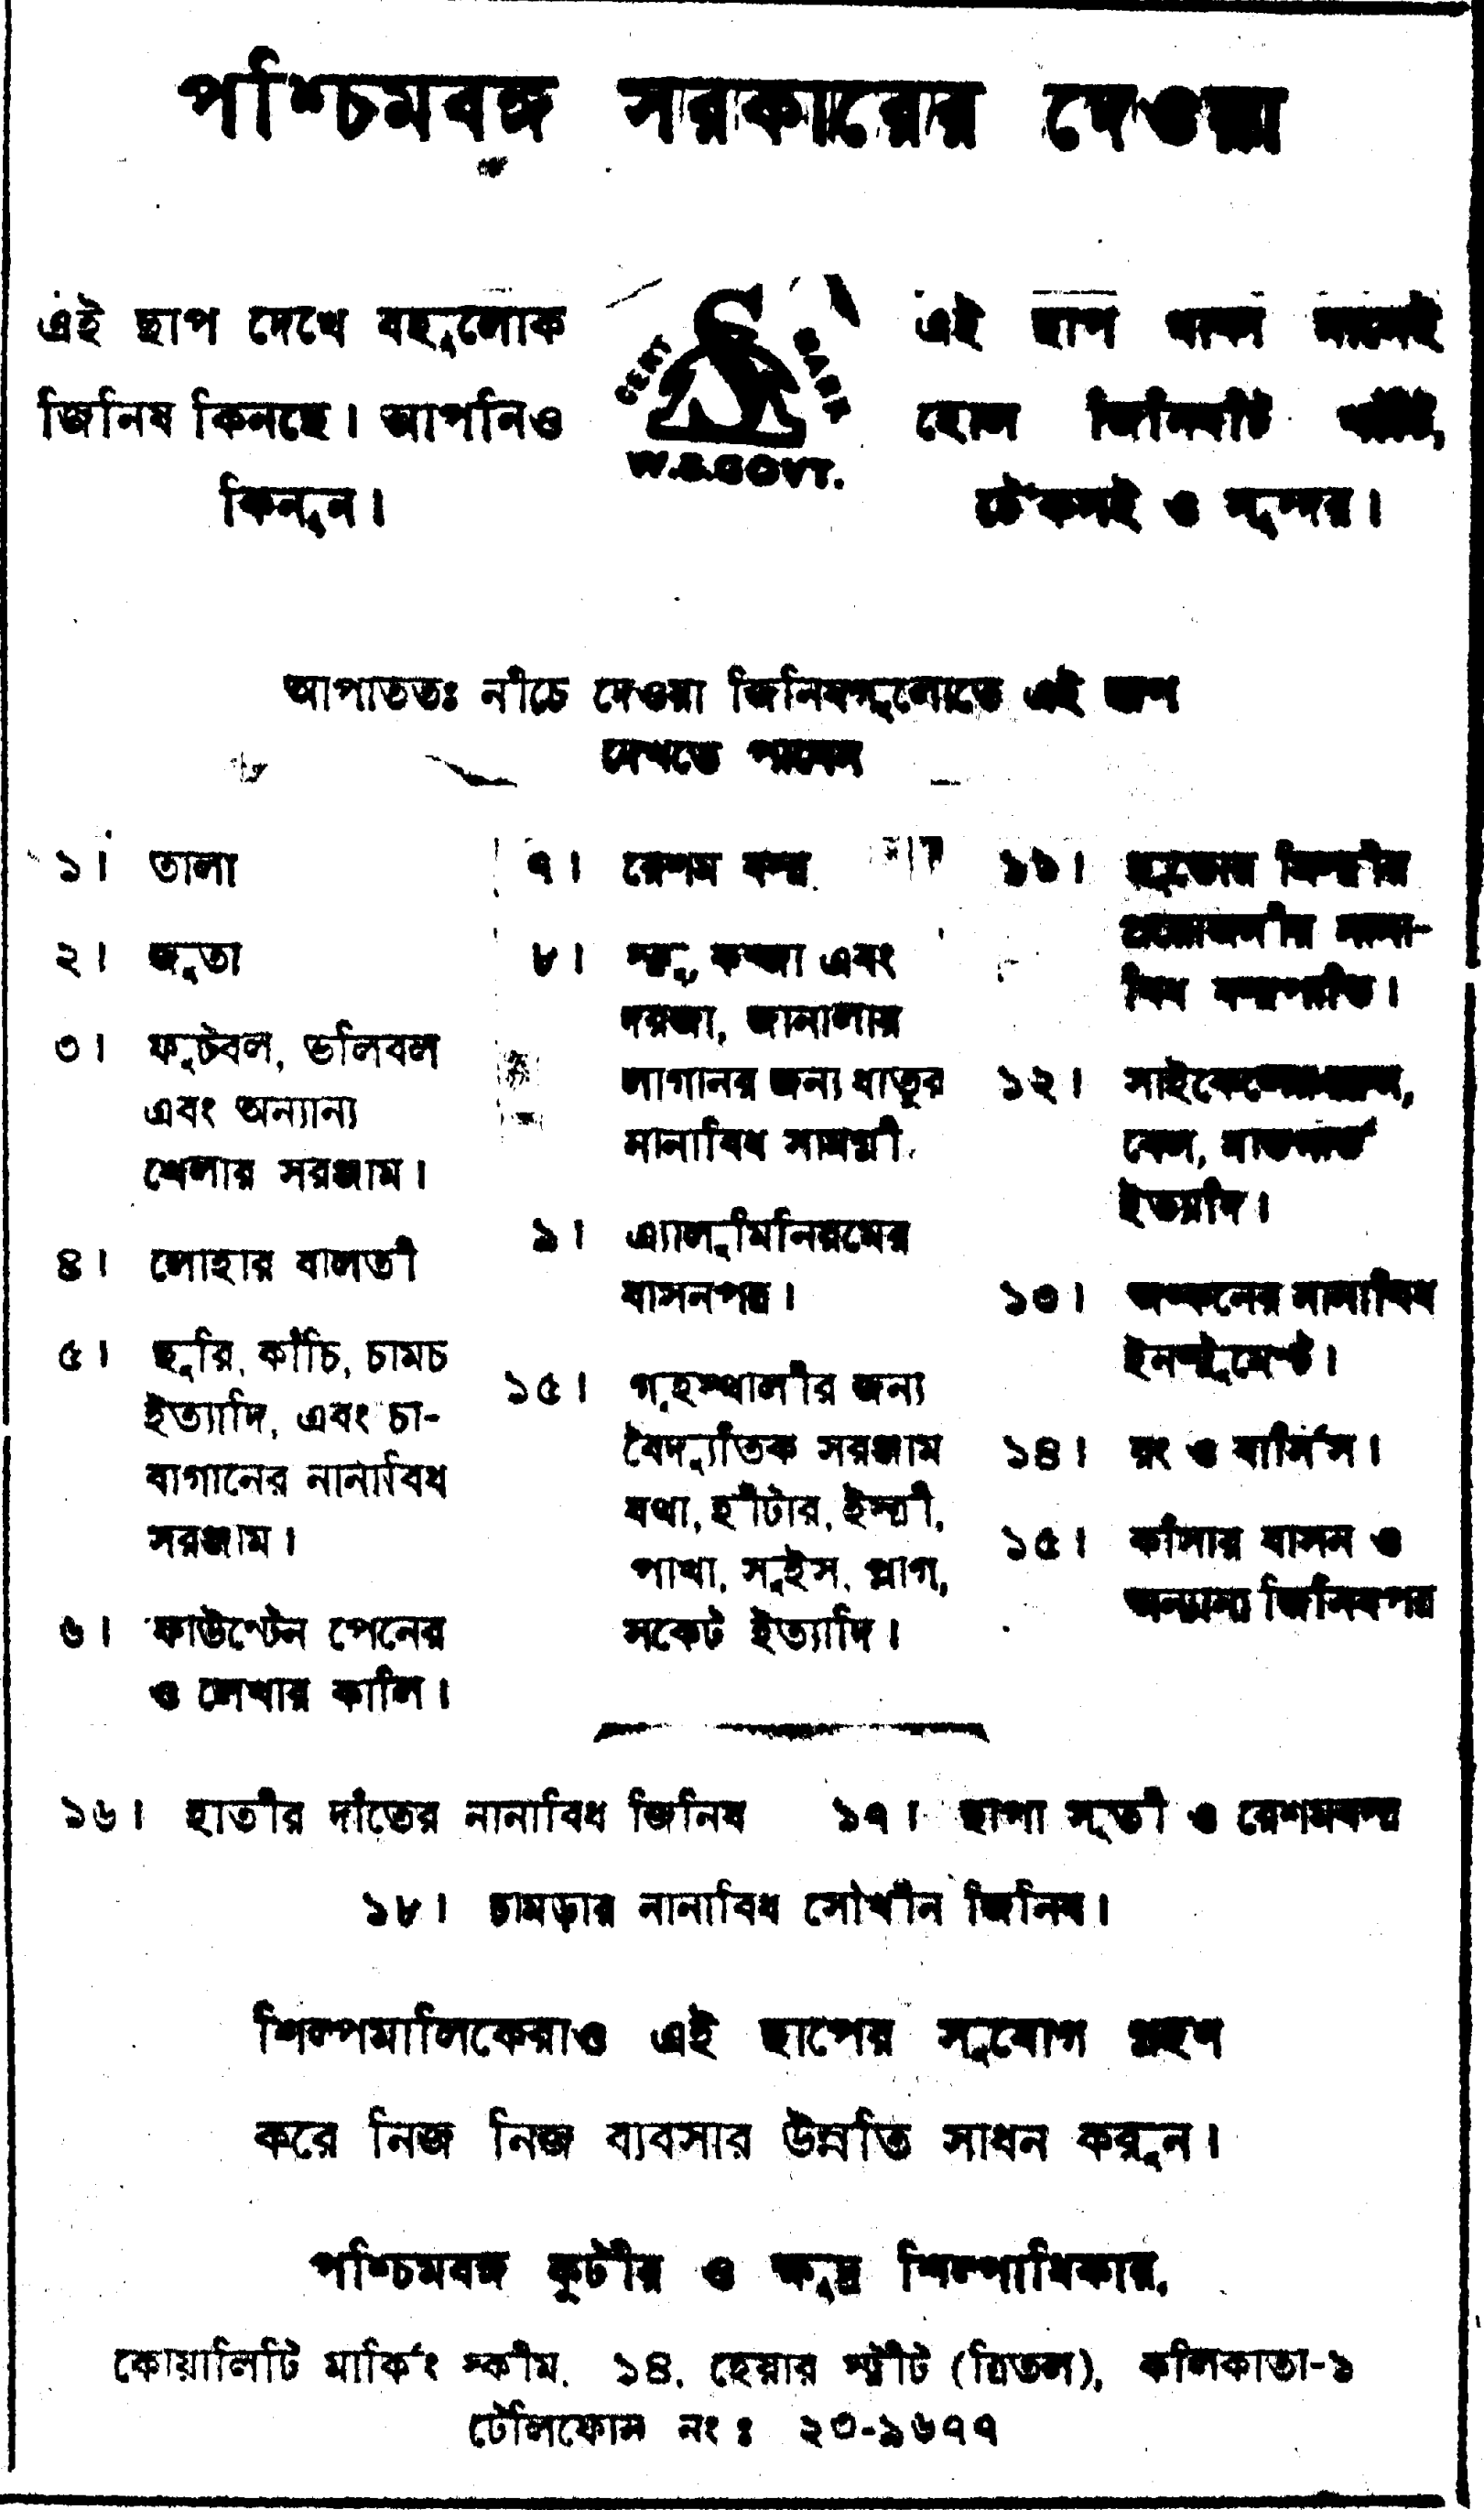 পশ্চিমবঙ্গ সরকারের দেওয়া
এই ছাপ দেখে বহুলোক
জিনিষ কিনছে। আপনিও
কিনুন।
W.B.GOVT.
এই ছাপ থাকা মানেই
হোল জিনিষটি খাঁটি,
টেঁকসই ও সুন্দর।
আপাততঃ নীচে দেওয়া জিনিষগুলোতে এই ছাপ
দেখতে পাবেন
১। তালা
২। জুতা
৩। ফুটবল, ভলিবল
এবং অন্যান্য
খেলার সরঞ্জাম।
৪। লোহার বালতী
৫। ছুরি, কাঁচি, চামচ
ইত্যাদি, এবং চা-
বাগানের নানাবিধ
সরঞ্জাম।
৬। ফাউন্টেন পেনের
ও লেখার কালি।
৭। রেশম বস্ত্র
৮। স্ক্রু, কব্জা এবং
দরজা, জানালার
লাগানর জন্য ধাতুর
নানাবিধ সামগ্রী
৯। এ্যালুমিনিয়মের
বাসনপত্র।
১৫। গৃহস্থালীর জন্য
বৈদ্যুতিক সরঞ্জাম
যথা, হীটার, ইস্ত্রী,
পাখা, সুইস, প্লাগ,
সকেট ইত্যাদি।
১১।
প্রয়োজনীয় নানা-
বিধ যন্ত্রপাতি।
১২।
বেল, মাডগার্ড
ইত্যাদি।
১৩। অঙ্কনের নানাবিধ
ইনস্ট্রুমেন্ট।
১৪। রং ও বার্ণিস।
১৫। কাঁসার বাসন ও
অন্যান্য জিনিষপত্র
১৬। হাতীর দাঁতের নানাবিধ জিনিষ ১৭। ছাপা সূতী ও রেশমবস্ত্র
১৮। চামড়ার নানাবিধ সৌখীন জিনিষ।
শিল্পমালিকেরাও এই ছাপের সুযোগ গ্রহণ
করে নিজ নিজ ব্যবসার উন্নতি সাধন করুন।
পশ্চিমবঙ্গ কুটীর ও ক্ষুদ্র শিল্পাধিকার,
কোয়ালিটি মার্কিং স্কীম, ১৪, হেয়ার স্ট্রীট (দ্বিতল), কলিকাতা-১
টেলিফোন নং : ২৩-১৬৭৭